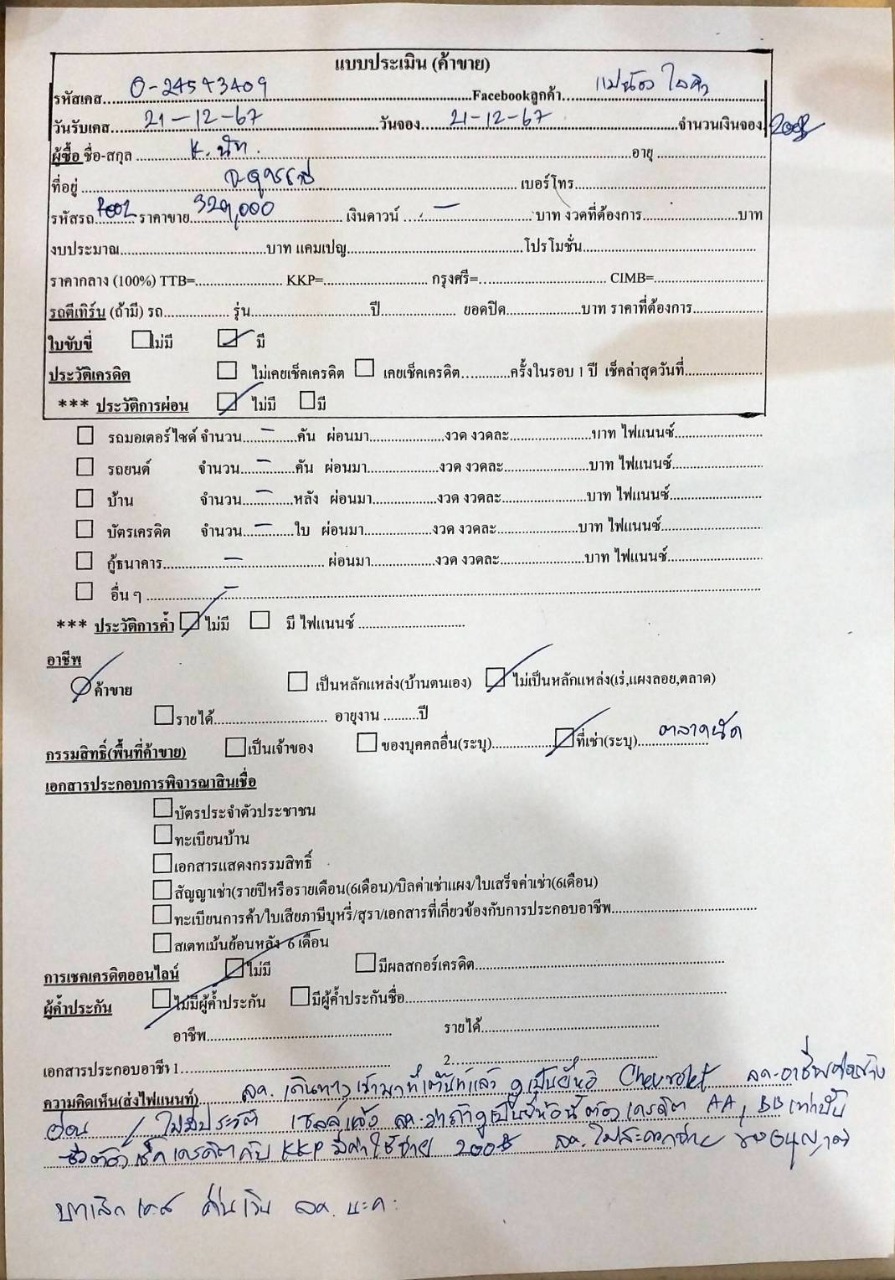 แบบประเมิน (ค้าขาย)
รหัสเคส 0-24593409 Facebookลูกค้า แม่น้อง ใจคิว
วันรับเคส 21-12-67 วันจอง 21-12-67 จำนวนเงินจอง 200฿
ผู้ซื้อ ชื่อ-สกุล K. นัท อายุ
ที่อยู่ จ.อุดรธานี เบอร์โทร
รหัสรถ ราคาขาย 329,000 เงินดาวน์ - บาท งวดที่ต้องการ บาท
งบประมาณ บาท แคมเปญ โปรโมชั่น
ราคากลาง (100%) TTB= KKP= กรุงศรี= CIMB=
รถตีเทิร์น (ถ้ามี) รถ รุ่น ปี ยอดปิด บาท ราคาที่ต้องการ
ใบขับขี่ ไม่มี มี
ประวัติเครดิต ไม่เคยเช็คเครดิต เคยเช็คเครดิต ครั้งในรอบ 1 ปี เช็คล่าสุดวันที่
*** ประวัติการผ่อน ไม่มี มี
รถมอเตอร์ไซด์ จำนวน - คัน ผ่อนมา งวด งวดละ บาท ไฟแนนซ์
รถยนต์ จำนวน - คัน ผ่อนมา งวด งวดละ บาท ไฟแนนซ์
บ้าน จำนวน - หลัง ผ่อนมา งวด งวดละ บาท ไฟแนนซ์
บัตรเครดิต จำนวน - ใบ ผ่อนมา งวด งวดละ บาท ไฟแนนซ์
กู้ธนาคาร - ผ่อนมา งวด งวดละ บาท ไฟแนนซ์
อื่น ๆ -
*** ประวัติการค้ำ ไม่มี มี ไฟแนนซ์
อาชีพ
ค้าขาย เป็นหลักแหล่ง(บ้านตนเอง) ไม่เป็นหลักแหล่ง(เร่,แผงลอย,ตลาด)
รายได้ อายุงาน ปี
กรรมสิทธิ์(พื้นที่ค้าขาย) เป็นเจ้าของ ของบุคคลอื่น(ระบุ) ที่เช่า(ระบุ) ตลาดนัด
เอกสารประกอบการพิจารณาสินเชื่อ
บัตรประจำตัวประชาชน
ทะเบียนบ้าน
เอกสารแสดงกรรมสิทธิ์
สัญญาเช่า(รายปีหรือรายเดือน(6เดือน)/บิลค่าเช่าแผง/ใบเสร็จค่าเช่า(6เดือน)
ทะเบียนการค้า/ใบเสียภาษีบุหรี่/สุรา/เอกสารที่เกี่ยวข้องกับการประกอบอาชีพ
สเตทเม้นย้อนหลัง 6 เดือน
การเชคเครดิตออนไลน์ ไม่มี มีผลสกอร์เครดิต
ผู้ค้ำประกัน ไม่มีผู้ค้ำประกัน มีผู้ค้ำประกันชื่อ
อาชีพ รายได้
เอกสารประกอบอาชีพ 1 2
ความคิดเห็น(ส่งไฟแนนท์) ลค. เดินทางเข้ามาที่เต็นท์แล้ว ดูเป็นยี่ห้อ Chevrolet ลค. อาชีพค่อนข้าง
อ่อน / ไม่มีประวัติ เซลล์แจ้ง ลค. ว่าถ้าดูเป็นยี่ห้อนี้ต้องเครดิต AA, BB เท่านั้น
ซึ่งต้องเช็คเครดิตกับ KKP มีค่าใช้จ่าย 200฿ ลค. ไม่สะดวกจ่าย ขออนุญาต
ยกเลิกเคส คืนเงิน ลค. นะคะ